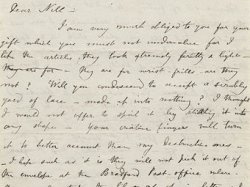 Dear Nell -
I am very much obliged to you for your
gift which you must not undervalue for I
like the articles, they look extremely pretty & light -
They are for wrist frills are they
not? Will you condescend to accept a
yard of lace - made up into nothing, I thought
I would not offer to spoil it by stitching it into
any shape - Your creative fingers will turn
it to better account than my destructive ones -
I hope such as it is they will not pick it out of
the envelope at the Bradford Post-office when